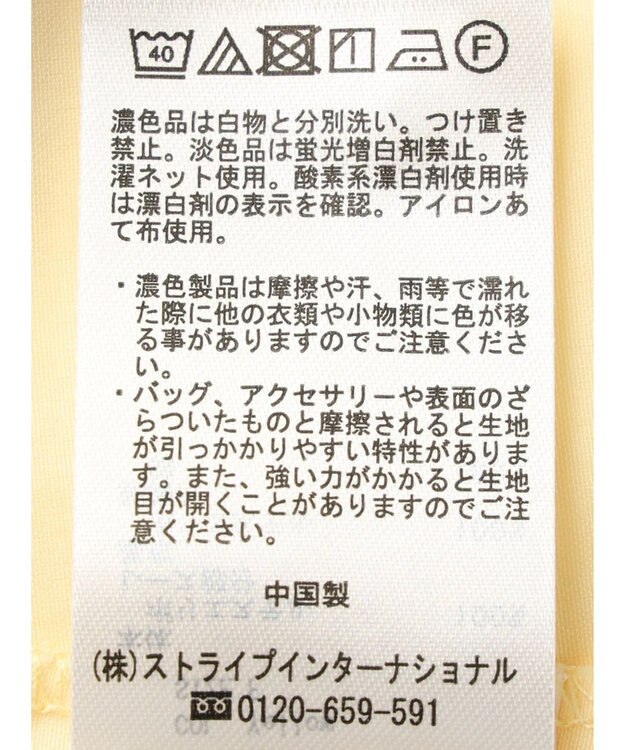 40 F
濃色品は白物と分別洗い。つけ置き
禁止。淡色品は蛍光増白剤禁止。洗
濯ネット使用。酸素系漂白剤使用時
は漂白剤の表示を確認。アイロンあ
て布使用。
・濃色製品は摩擦や汗、雨等で濡れ
た際に他の衣類や小物類に色が移
る事がありますのでご注意くださ
い。
・バッグ、アクセサリーや表面のざ
らついたものと摩擦されると生地
が引っかかりやすい特性がありま
す。また、強い力がかかると生地
目が開くことがありますのでご注
意ください。
中国製
(株)ストライプインターナショナル
0120-659-591